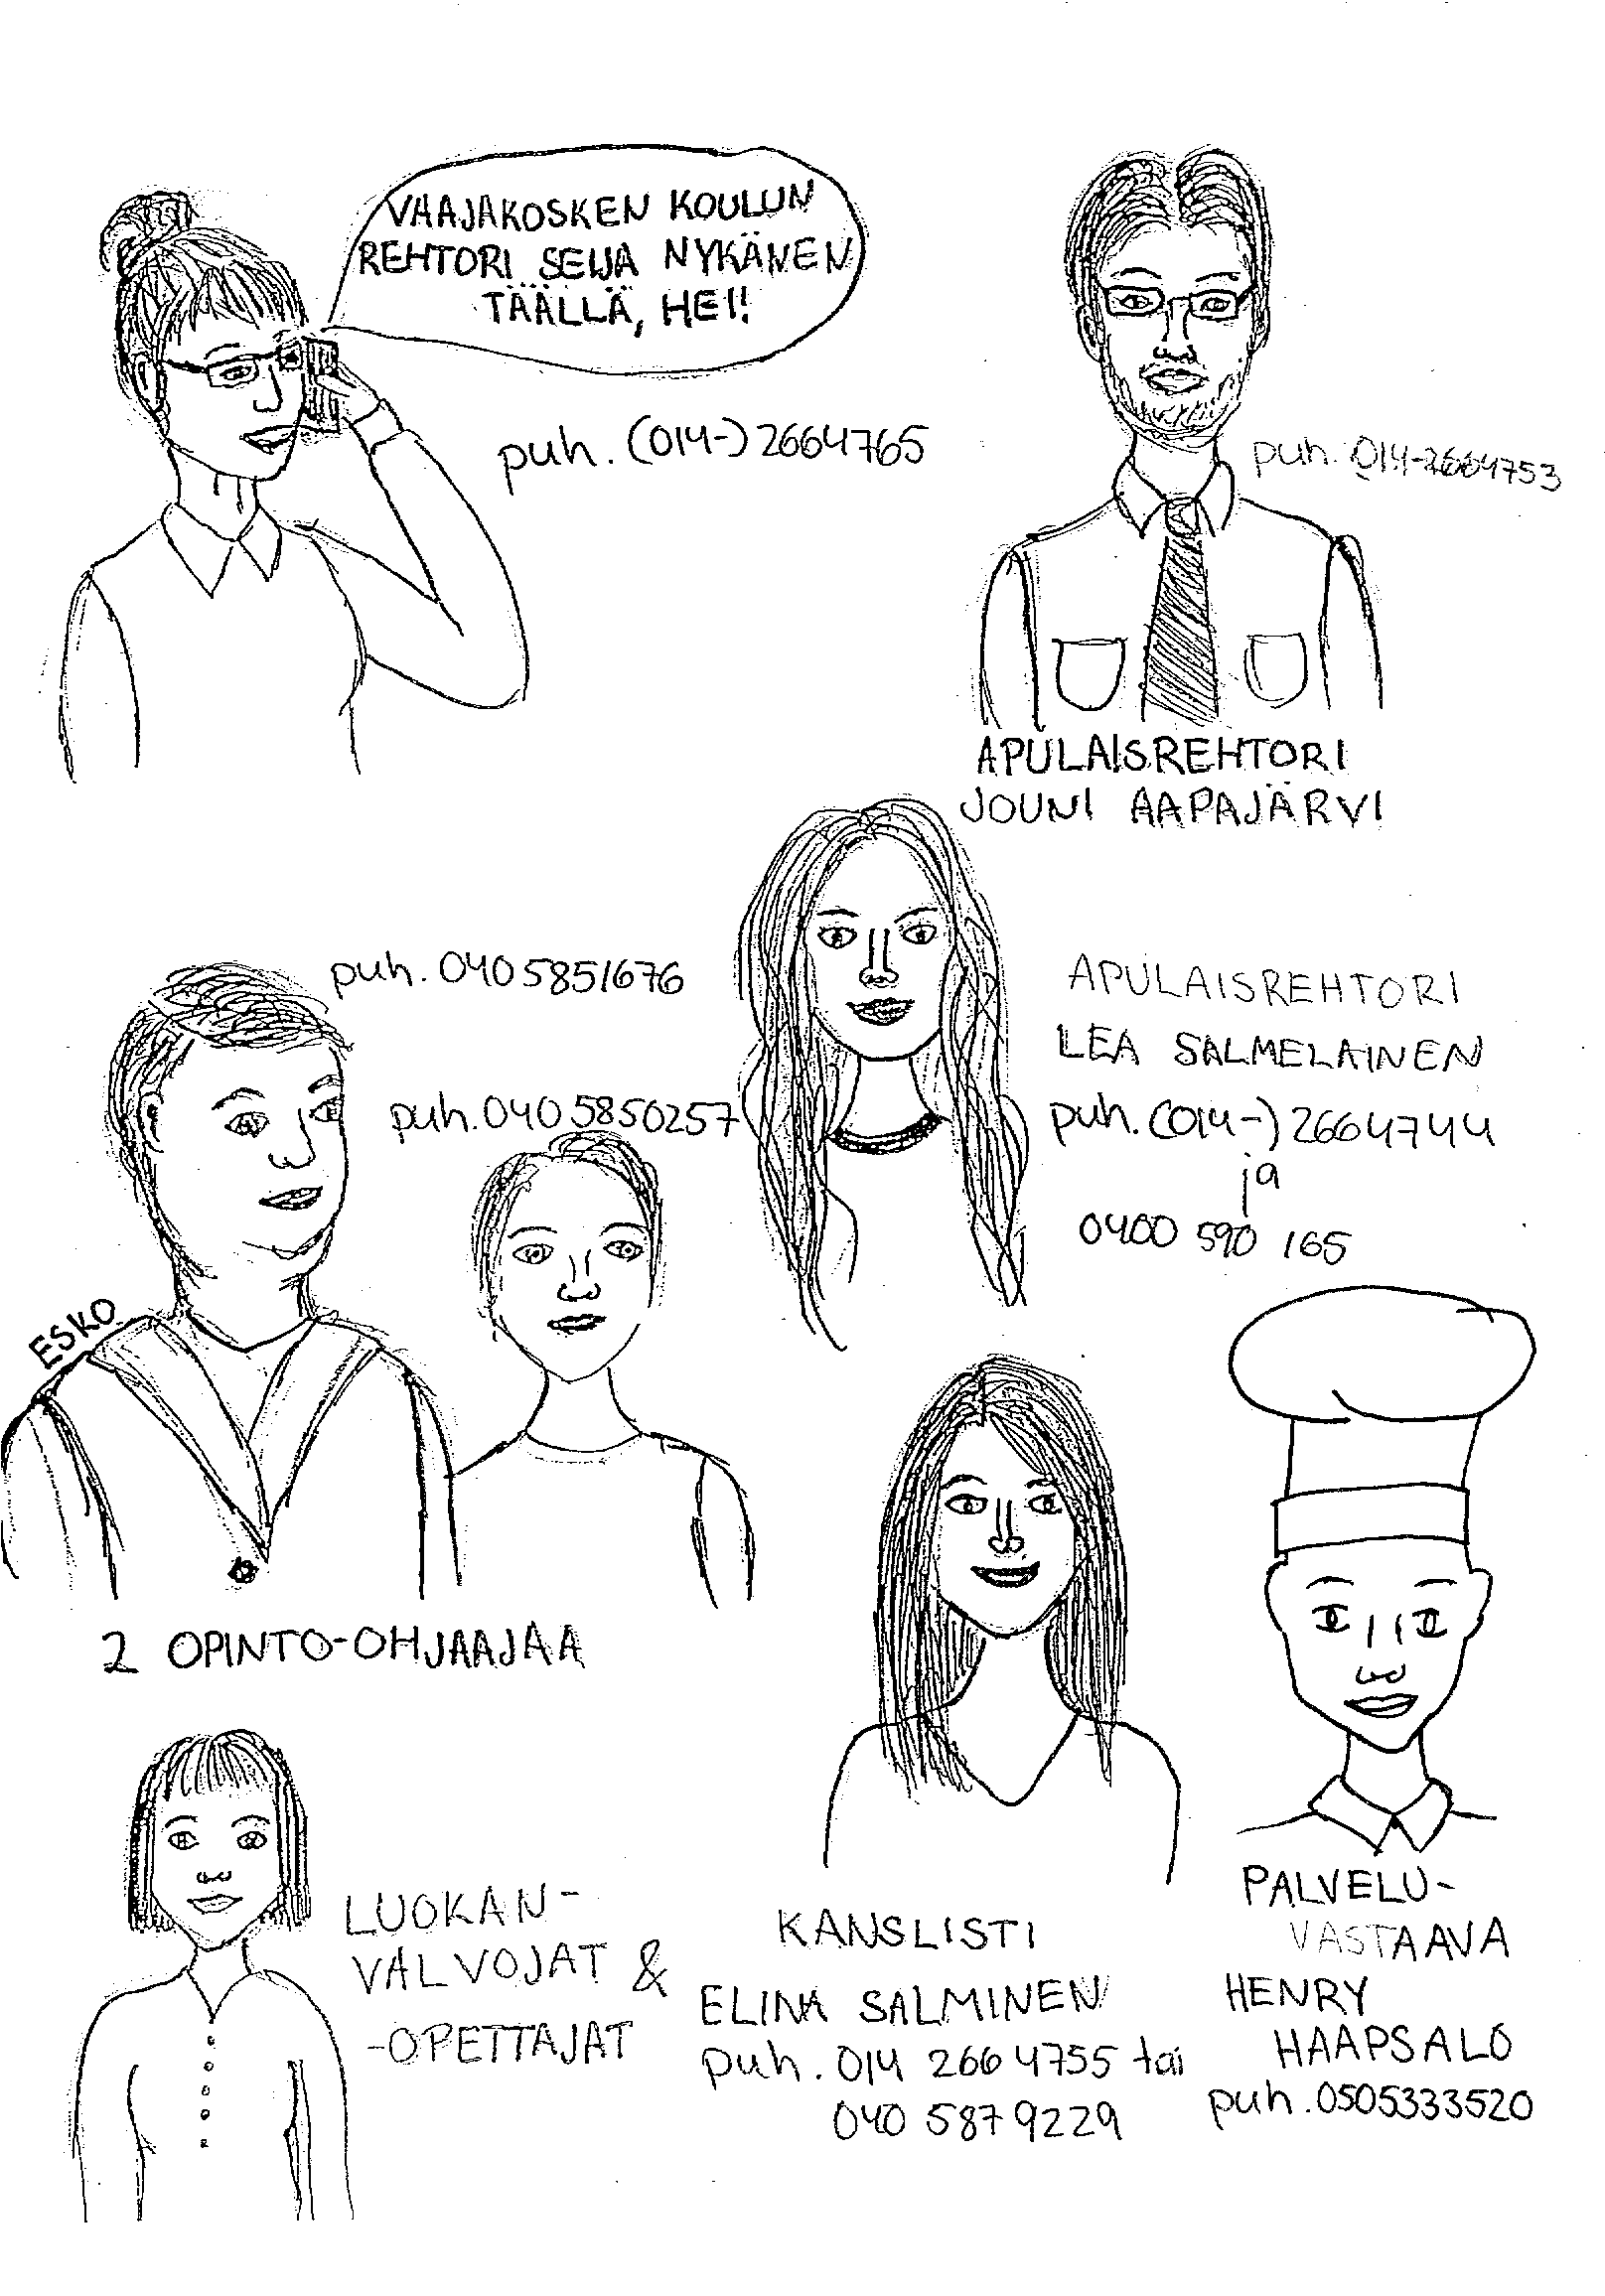 VAAJAKOSKEN KOULUN
REHTORI SEIJA NYKÄNEN
TÄÄLLÄ, HEI!
puh. (014-) 2664765
puh. 014-2664753
APULAISREHTORI
JOUNI AAPAJÄRVI
puh. 040 5851676
puh. 040 5850257
APULAISREHTORI
LEA SALMELAINEN
puh. (014-) 2664744
ja
0400 590 165
ESKO
2 OPINTO-OHJAAJAA
LUOKAN-
VALVOJAT &
-OPETTAJAT
KANSLISTI
ELINA SALMINEN
puh. 014 266 4755 tai
040 587 9229
PALVELU-
VASTAAVA
HENRY
HAAPSALO
puh. 0505333520